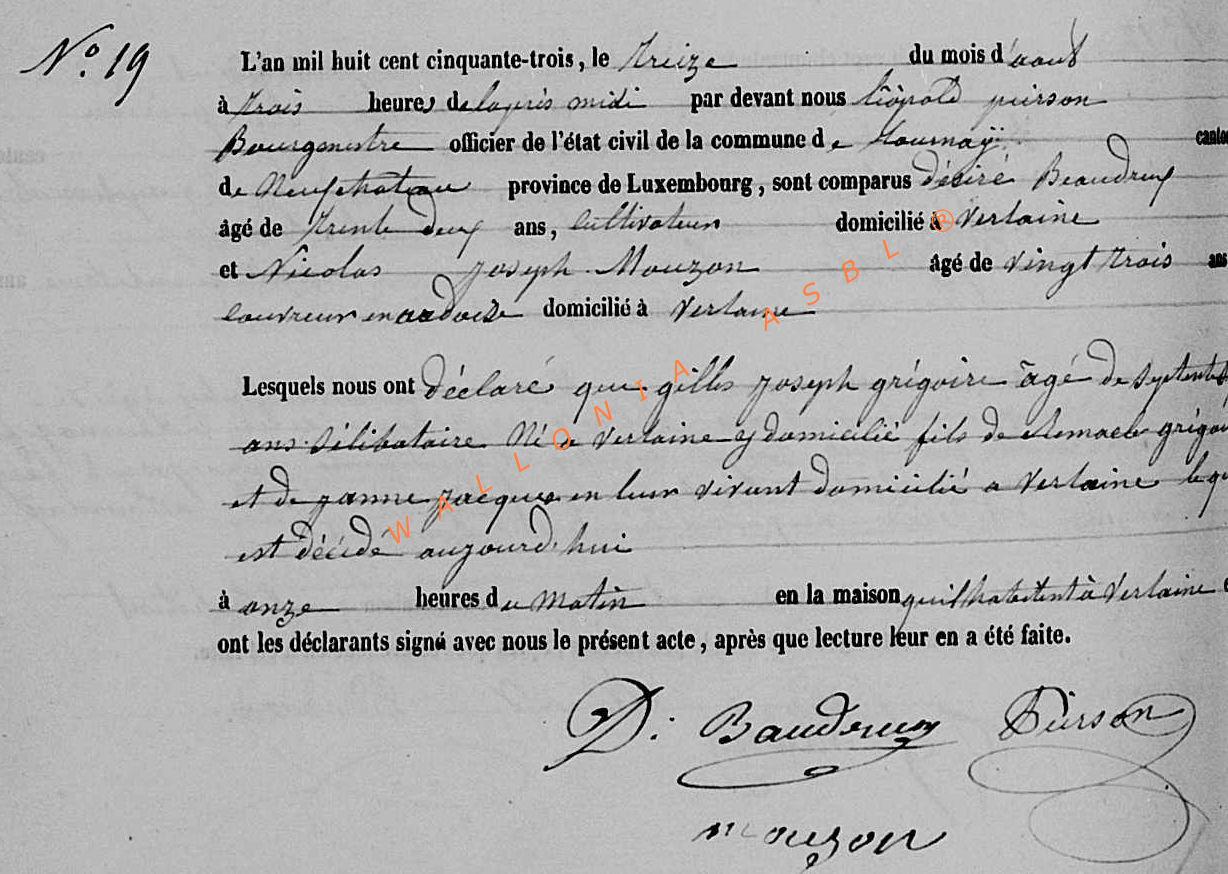 No. 19
L'an mil huit cent cinquante-trois, le treize du mois d'aout
à trois heures de lapris midi par devant nous léopold pierson
Bourgmestre officier de l'état civil de la commune de Tournay canton
de Neufchateau province de Luxembourg, sont comparus désiré Beaudruy
âgé de Trente deux ans, cultivateur domicilié à Verlaine
et Nicolas joseph Mouzon âgé de vingt trois ans
couvreur en ardoise domicilié à Verlaine
Lesquels nous ont déclaré que gilles joseph grégoire agé de septente
ans Sélibataire Né a Verlaine y domicilié fils de remacle grégoire
et de janne jacques en leur vivant domicilié a Verlaine lequel
est décédé aujourd'hui
à onze heures du matin en la maison quil habitent à Verlaine
ont les déclarants signé avec nous le présent acte, après que lecture leur en a été faite.
D: Baudruy Pierson
mouzon
WALLONIA ASBL ®